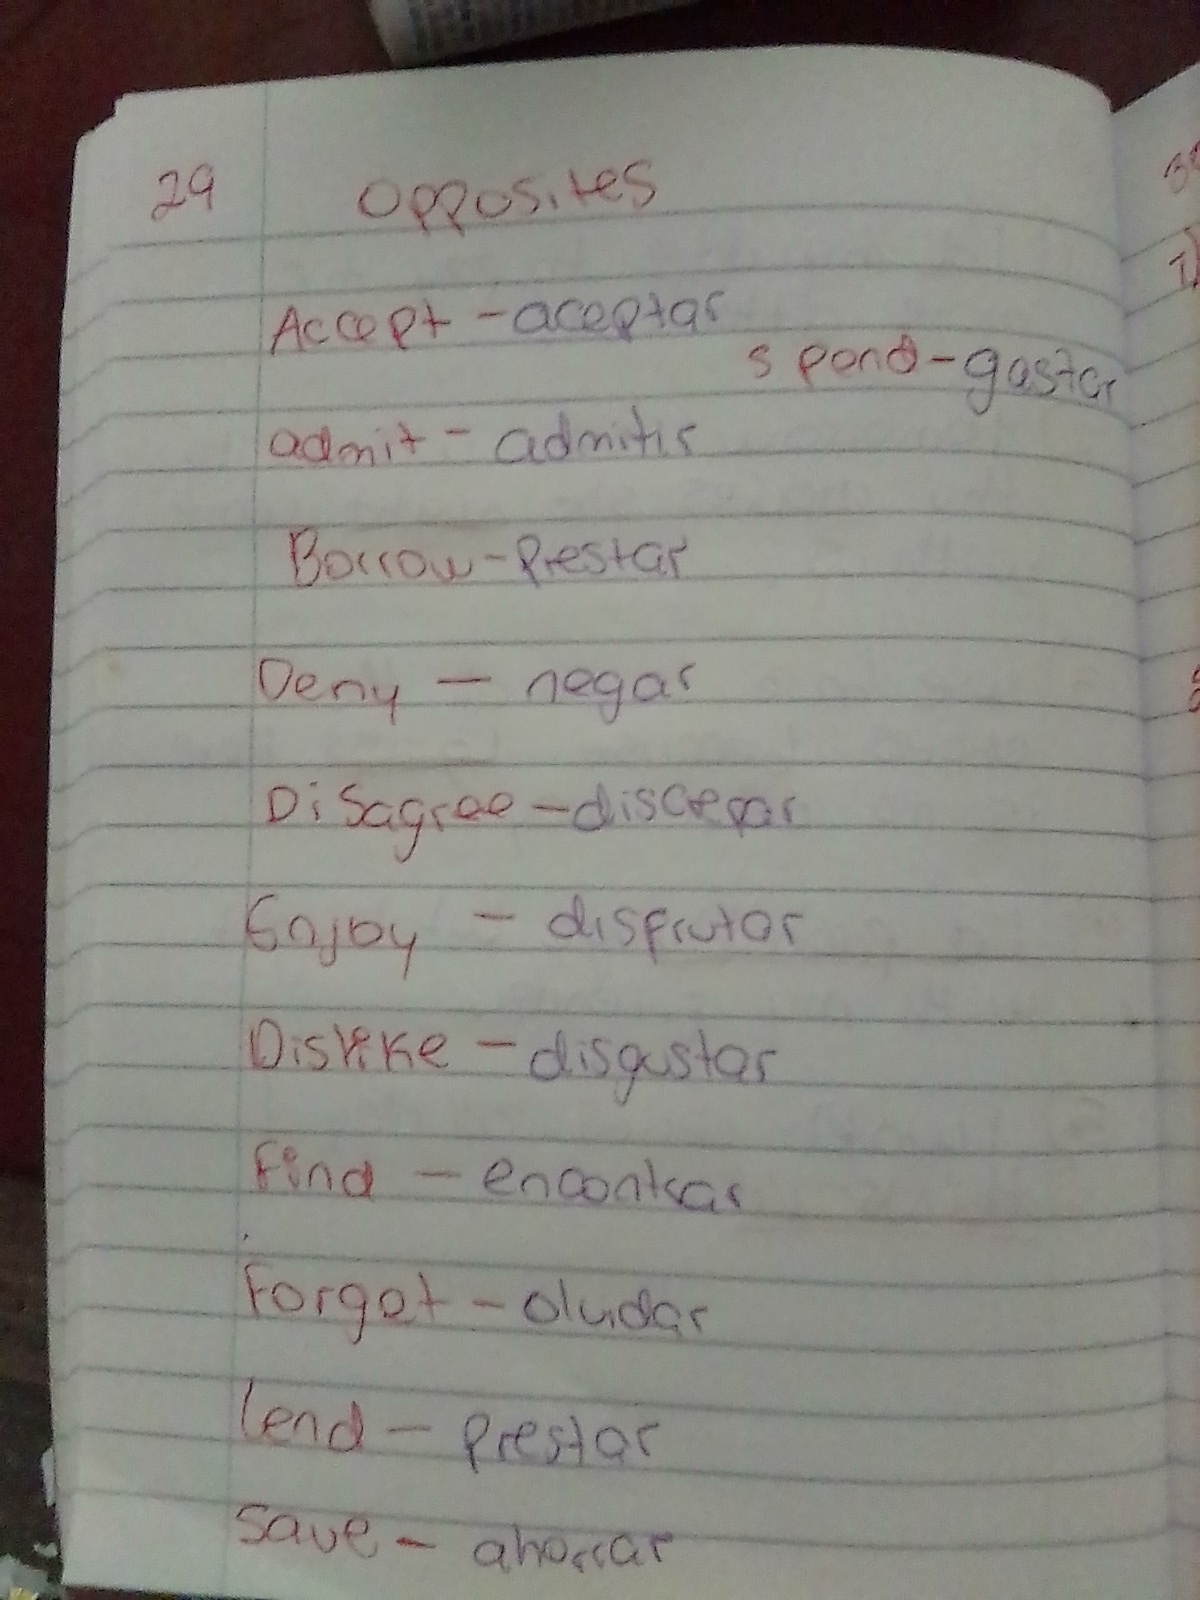 29 Opposites
Accept - aceptar
spend - gastar
admit - admitir
Borrow - Prestar
Deny - negar
DiSagree - discrepar
Enjoy - disfrutar
Dislike - disgustar
Find - encontrar
Forget - olvidar
lend - prestar
Save - ahorrar